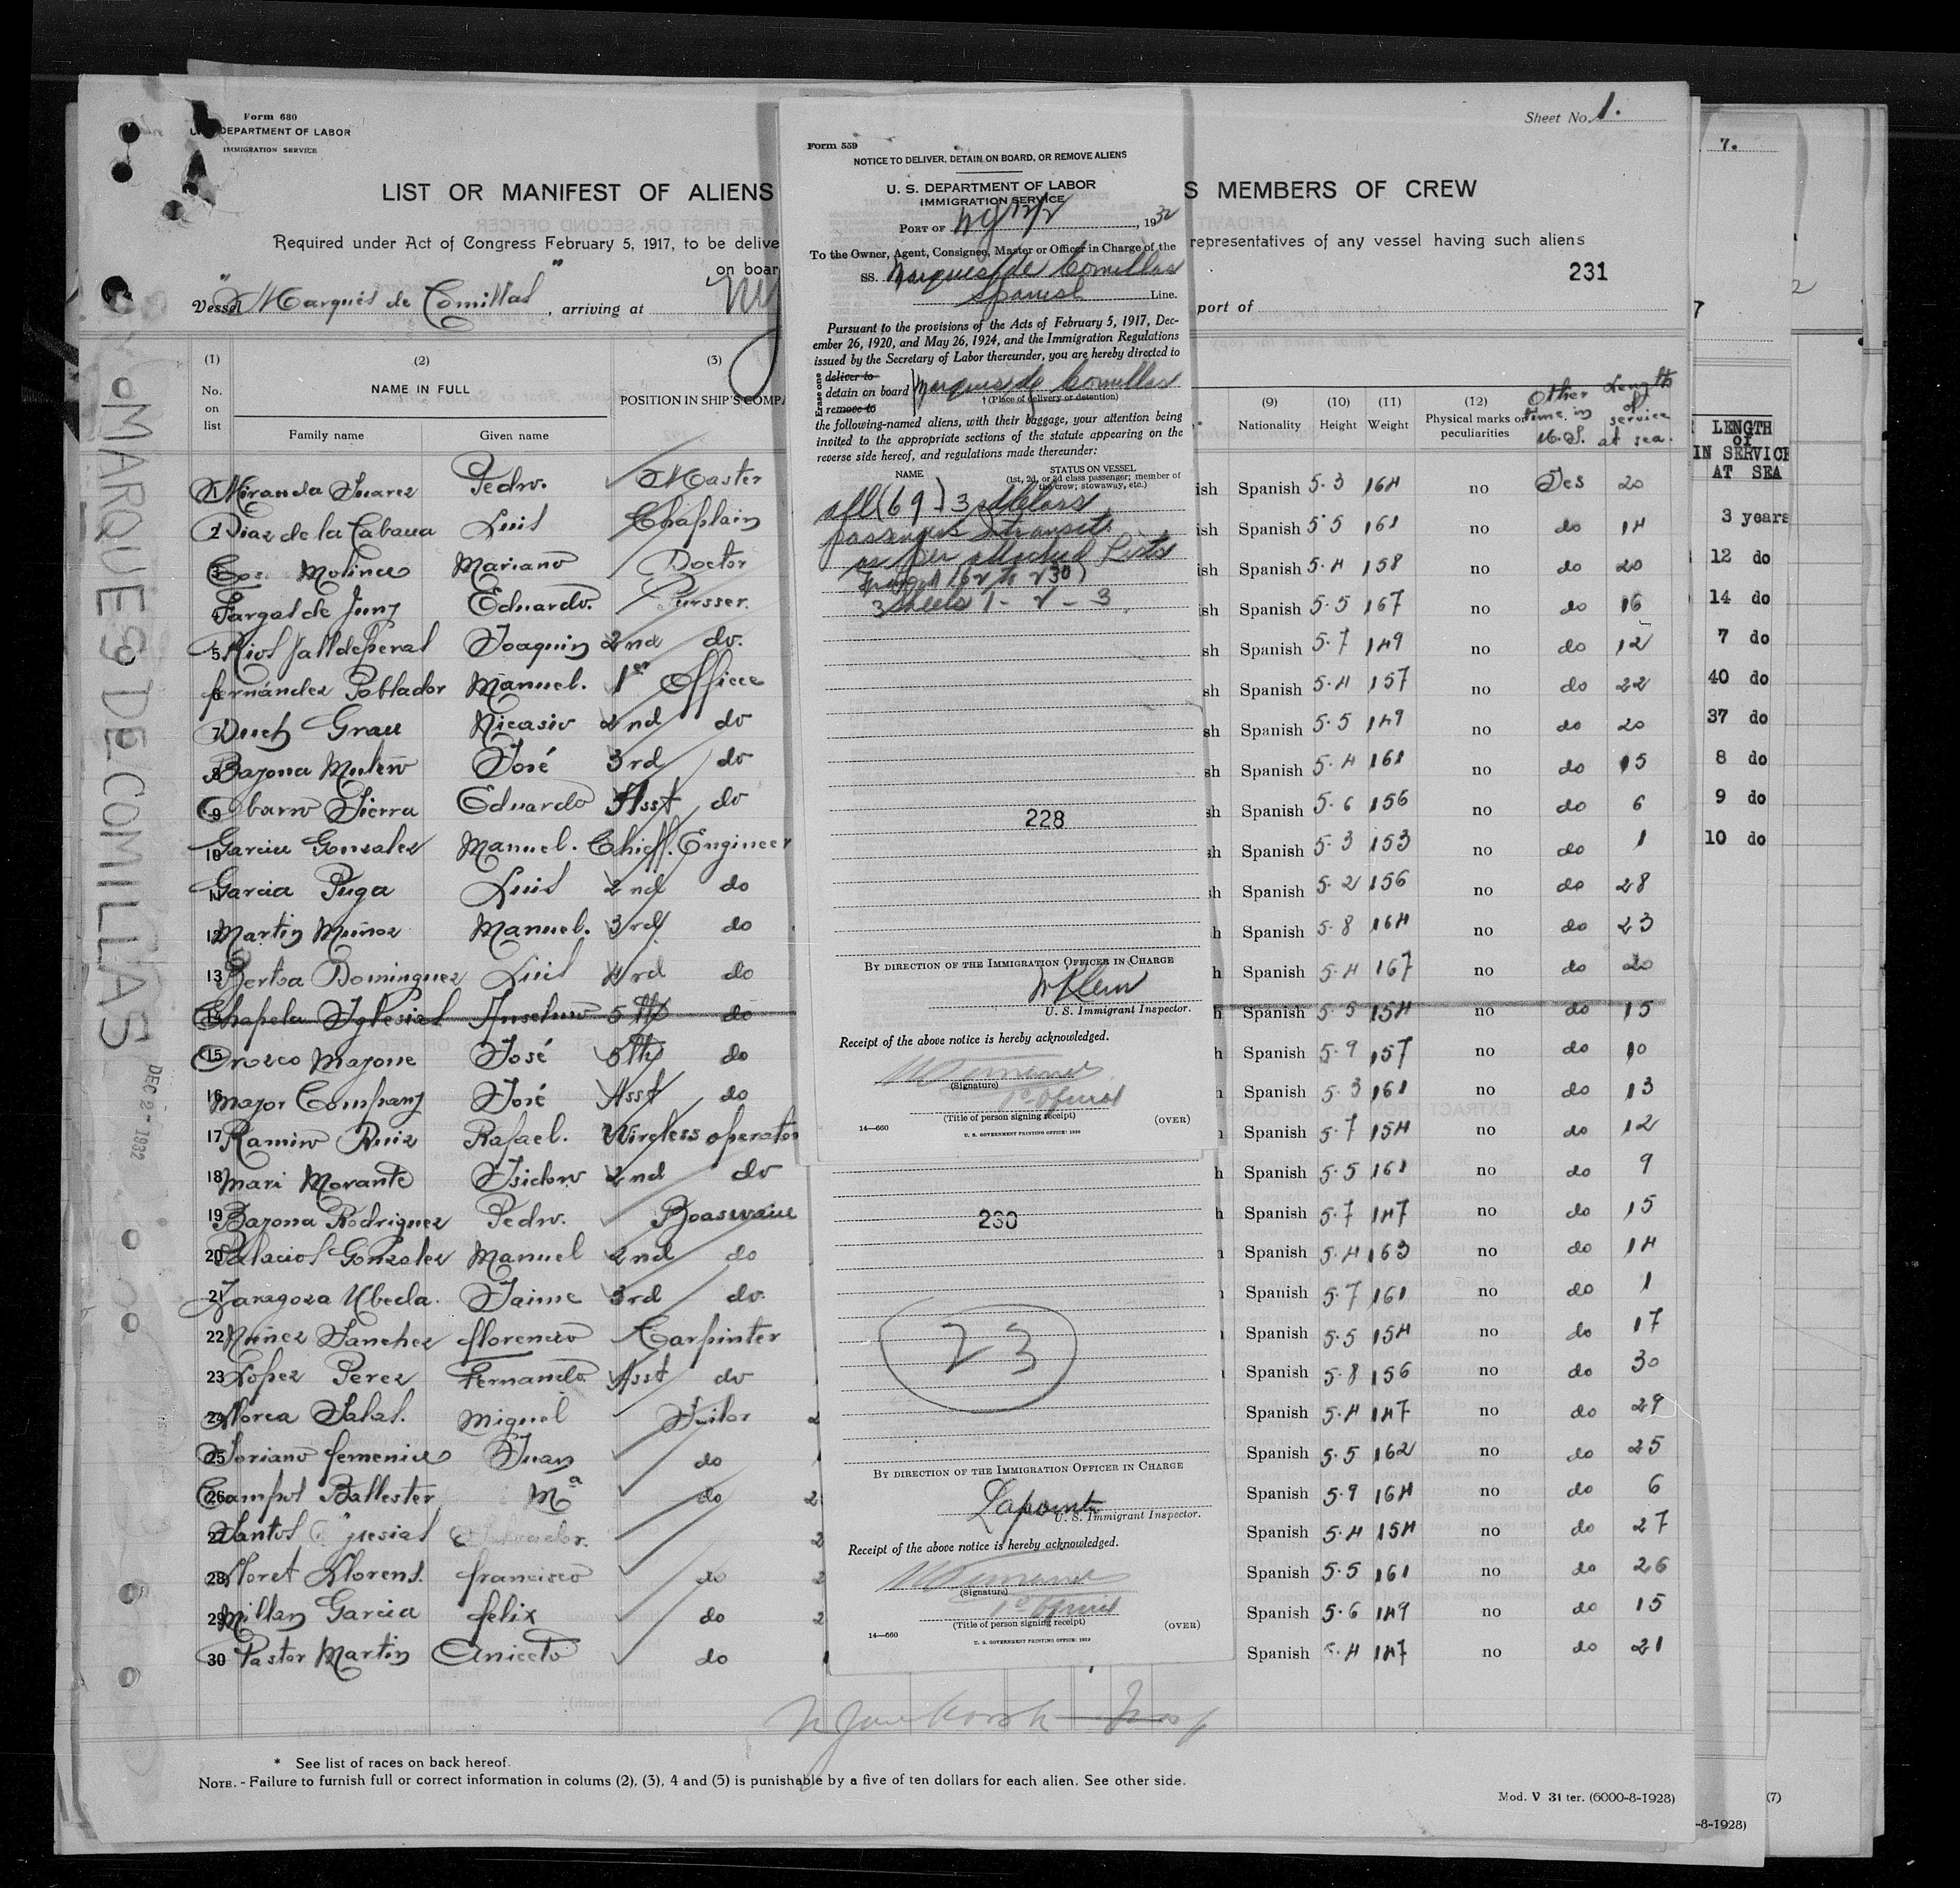 Form 680
DEPARTMENT OF LABOR
IMMIGRATION SERVICE
Sheet No. 1.
LIST OR MANIFEST OF ALIENS
S MEMBERS OF CREW
Required under Act of Congress February 5, 1917, to be delive
representatives of any vessel having such aliens
on boar
231
Vessel Marqués de Comillas, arriving at
port of
(1) (2) (3) (9) (10) (11) (12)
No. on list NAME IN FULL POSITION IN SHIP'S COMPA Nationality Height Weight Physical marks or peculiarities Other time in U.S. Length of service at sea.
Family name Given name
1 Miranda Suarez Pedro. Master ish Spanish 5.3 164 no Yes 20
2 Diaz de la Cabaua Luis Chaplain ish Spanish 5 5 161 no do 14
Molines Mariano Doctor ish Spanish 5.4 158 no do 20
Fargas de Juny Eduardo. Pursser. ish Spanish 5.5 167 no do 16
5 Rios Valldeperas Joaquin 2nd do. sh Spanish 5.7 149 no do 12
6 fernández Poblador Manuel. 1er Officce sh Spanish 5.4 157 no do 22
7 Duch Grau Nicasio 2nd do sh Spanish 5.5 149 no do 20
8 Bazona José 3rd do sh Spanish 5.4 161 no do 15
9 Obarro Sierra Eduardo Asst do sh Spanish 5.6 156 no do 6
10 Garcia Gonzalez Manuel. Chieff. Engineer sh Spanish 5 3 153 no do 1
11 Garcia Puga Luis 2nd do sh Spanish 5.2 156 no do 28
12 Martin Muñoz Manuel. 3rd do h Spanish 5.8 164 no do 23
13 Bertoa Dominguez Luis 4rd do h Spanish 5.4 167 no do 20
14 Chapela Iglesias Anselmo 5th do h Spanish 5.5 154 no do 15
15 Orozco Mayone José 5th do h Spanish 5.9 157 no do 10
16 Mayor Company José Asst do h Spanish 5.3 161 no do 13
17 Ramiro Ruiz Rafael. Wireless operator Spanish 5.7 154 no do 12
18 Mari Morante Isidoro 2nd do h Spanish 5.5 161 no do 9
19 Bazona Rodriguez Pedro. Boaswaine Spanish 5.7 147 no do 15
20 Palacios Gonzalez Manuel 2nd do Spanish 5.4 163 no do 14
21 Zaragoza Ubeda. Jaime 3rd do. Spanish 5.7 161 no do 1
22 Nuñez Sanchez florencio Carpinter Spanish 5.5 154 no do 17
23 Lopez Perez Fernando Asst do Spanish 5.8 156 no do 30
24 Llorca Salas. Miguel Sailor 2 Spanish 5.4 147 no do 29
25 Soriano femenia Juan do Spanish 5.5 162 no do 25
26 Campos Ballester Mª do 2 Spanish 5.9 164 no do 6
27 Santos 2 Spanish 5.4 154 no do 27
28 Lloret Llorens. francisco do 2 Spanish 5.5 161 no do 26
29 Millan Garcia felix do 2 Spanish 5.6 149 no do 15
30 Pastor Martin Aniceto do Spanish 5.4 147 no do 21
* See list of races on back hereof.
NOTE. - Failure to furnish full or correct information in colums (2), (3), 4 and (5) is punishable by a five of ten dollars for each alien. See other side.
Mod. V 31 ter. (6000-8-1928)
MARQUES DE COMILLAS
DEC 2 - 1932
Form 559
NOTICE TO DELIVER, DETAIN ON BOARD, OR REMOVE ALIENS
U. S. DEPARTMENT OF LABOR
IMMIGRATION SERVICE
PORT OF NY 12/2, 1932
To the Owner, Agent, Consignee, Master or Officer in Charge of the
SS. Marques de Comillas
Spanish Line.
Pursuant to the provisions of the Acts of February 5, 1917, Dec-
ember 26, 1920, and May 26, 1924, and the Immigration Regulations
issued by the Secretary of Labor thereunder, you are hereby directed to
Erase one
deliver to
detain on board Marques de Comillas
remove to
† (Place of delivery or detention)
the following-named aliens, with their baggage, your attention being
invited to the appropriate sections of the statute appearing on the
reverse side hereof, and regulations made thereunder:
NAME STATUS ON VESSEL
(1st, 2d, or 3d class passenger; member of the crew; stowaway, etc.)
all (69) 3 class
passengers transit
as per attached Lists
(162 to 230)
3 sheets 1 - 2 - 3
228
BY DIRECTION OF THE IMMIGRATION OFFICER IN CHARGE
Klein
U. S. Immigrant Inspector.
Receipt of the above notice is hereby acknowledged.
(Signature)
(Title of person signing receipt)
(OVER)
14—660
U. S. GOVERNMENT PRINTING OFFICE: 1929
230
23
BY DIRECTION OF THE IMMIGRATION OFFICER IN CHARGE
Lapointe
U. S. Immigrant Inspector.
Receipt of the above notice is hereby acknowledged.
(Signature)
(Title of person signing receipt)
(OVER)
14—660
U. S. GOVERNMENT PRINTING OFFICE: 1929
7.
7
2
LENGTH
of
IN SERVICE
AT SEA
3 years
12 do
14 do
7 do
40 do
37 do
8 do
9 do
10 do
(7)
-8-1928)